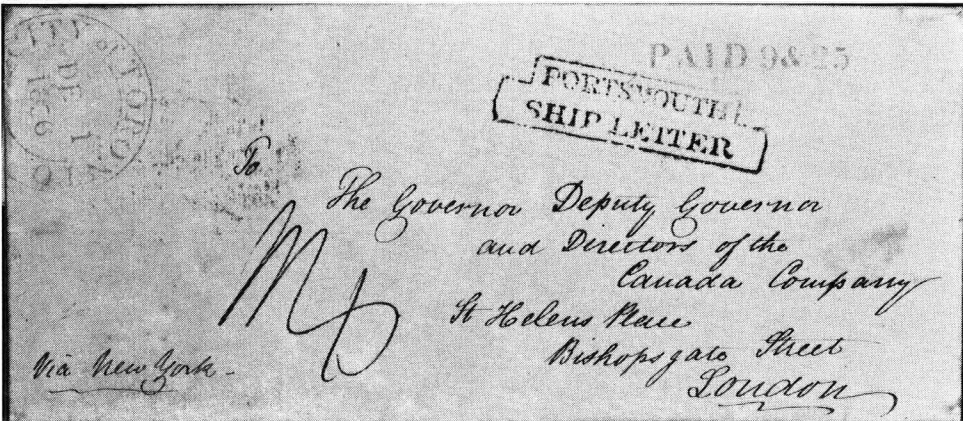 CITY of TORONTO
DE 1
1836
PAID 9&25
PORTSMOUTH
SHIP LETTER
To
The Governor Deputy Governor
and Directors of the
Canada Company
St Helens Place
Bishopsgate Street
London
Via New York -